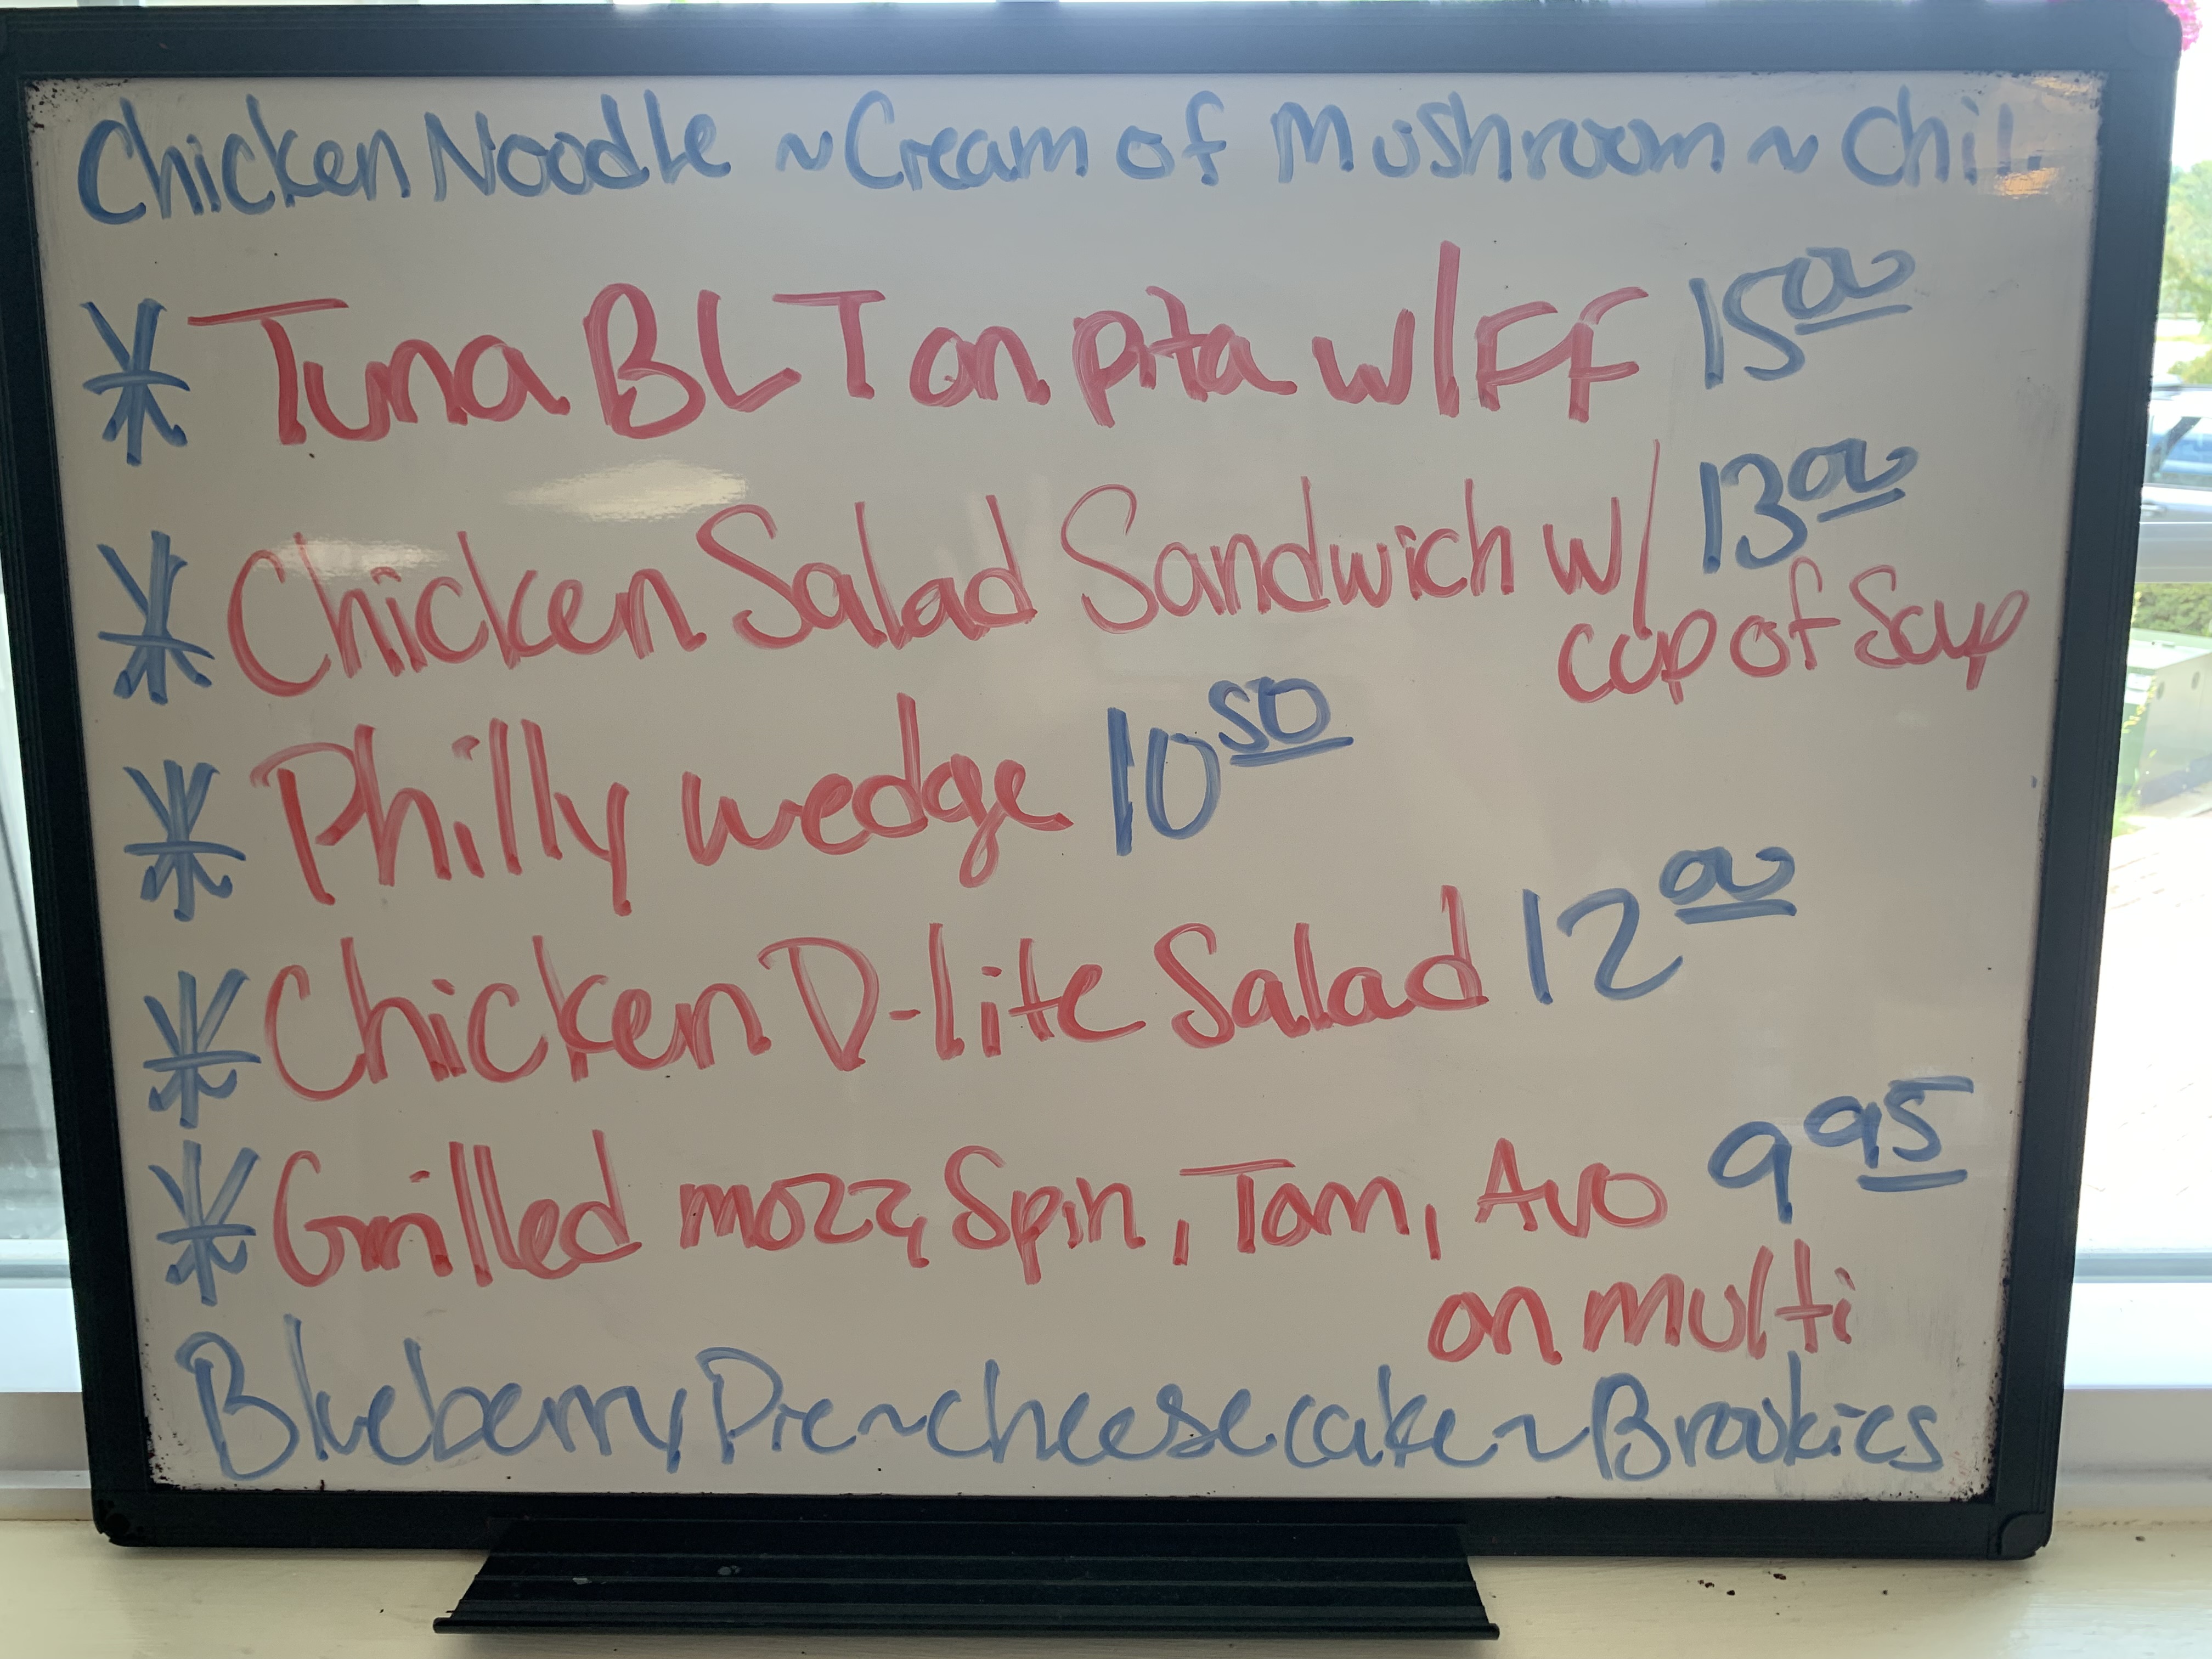 Chicken Noodle ~ Cream of Mushroom ~ Chili
* Tuna BLT on pita w/FF 15.00
* Chicken Salad Sandwich w/ 13.00
cup of Soup
* Philly wedge 10.50
* Chicken D-lite Salad 12.00
* Grilled mozz, Spin, Tom, Avo 9.95
on multi
Blueberry Pie ~ cheesecake ~ Brookies